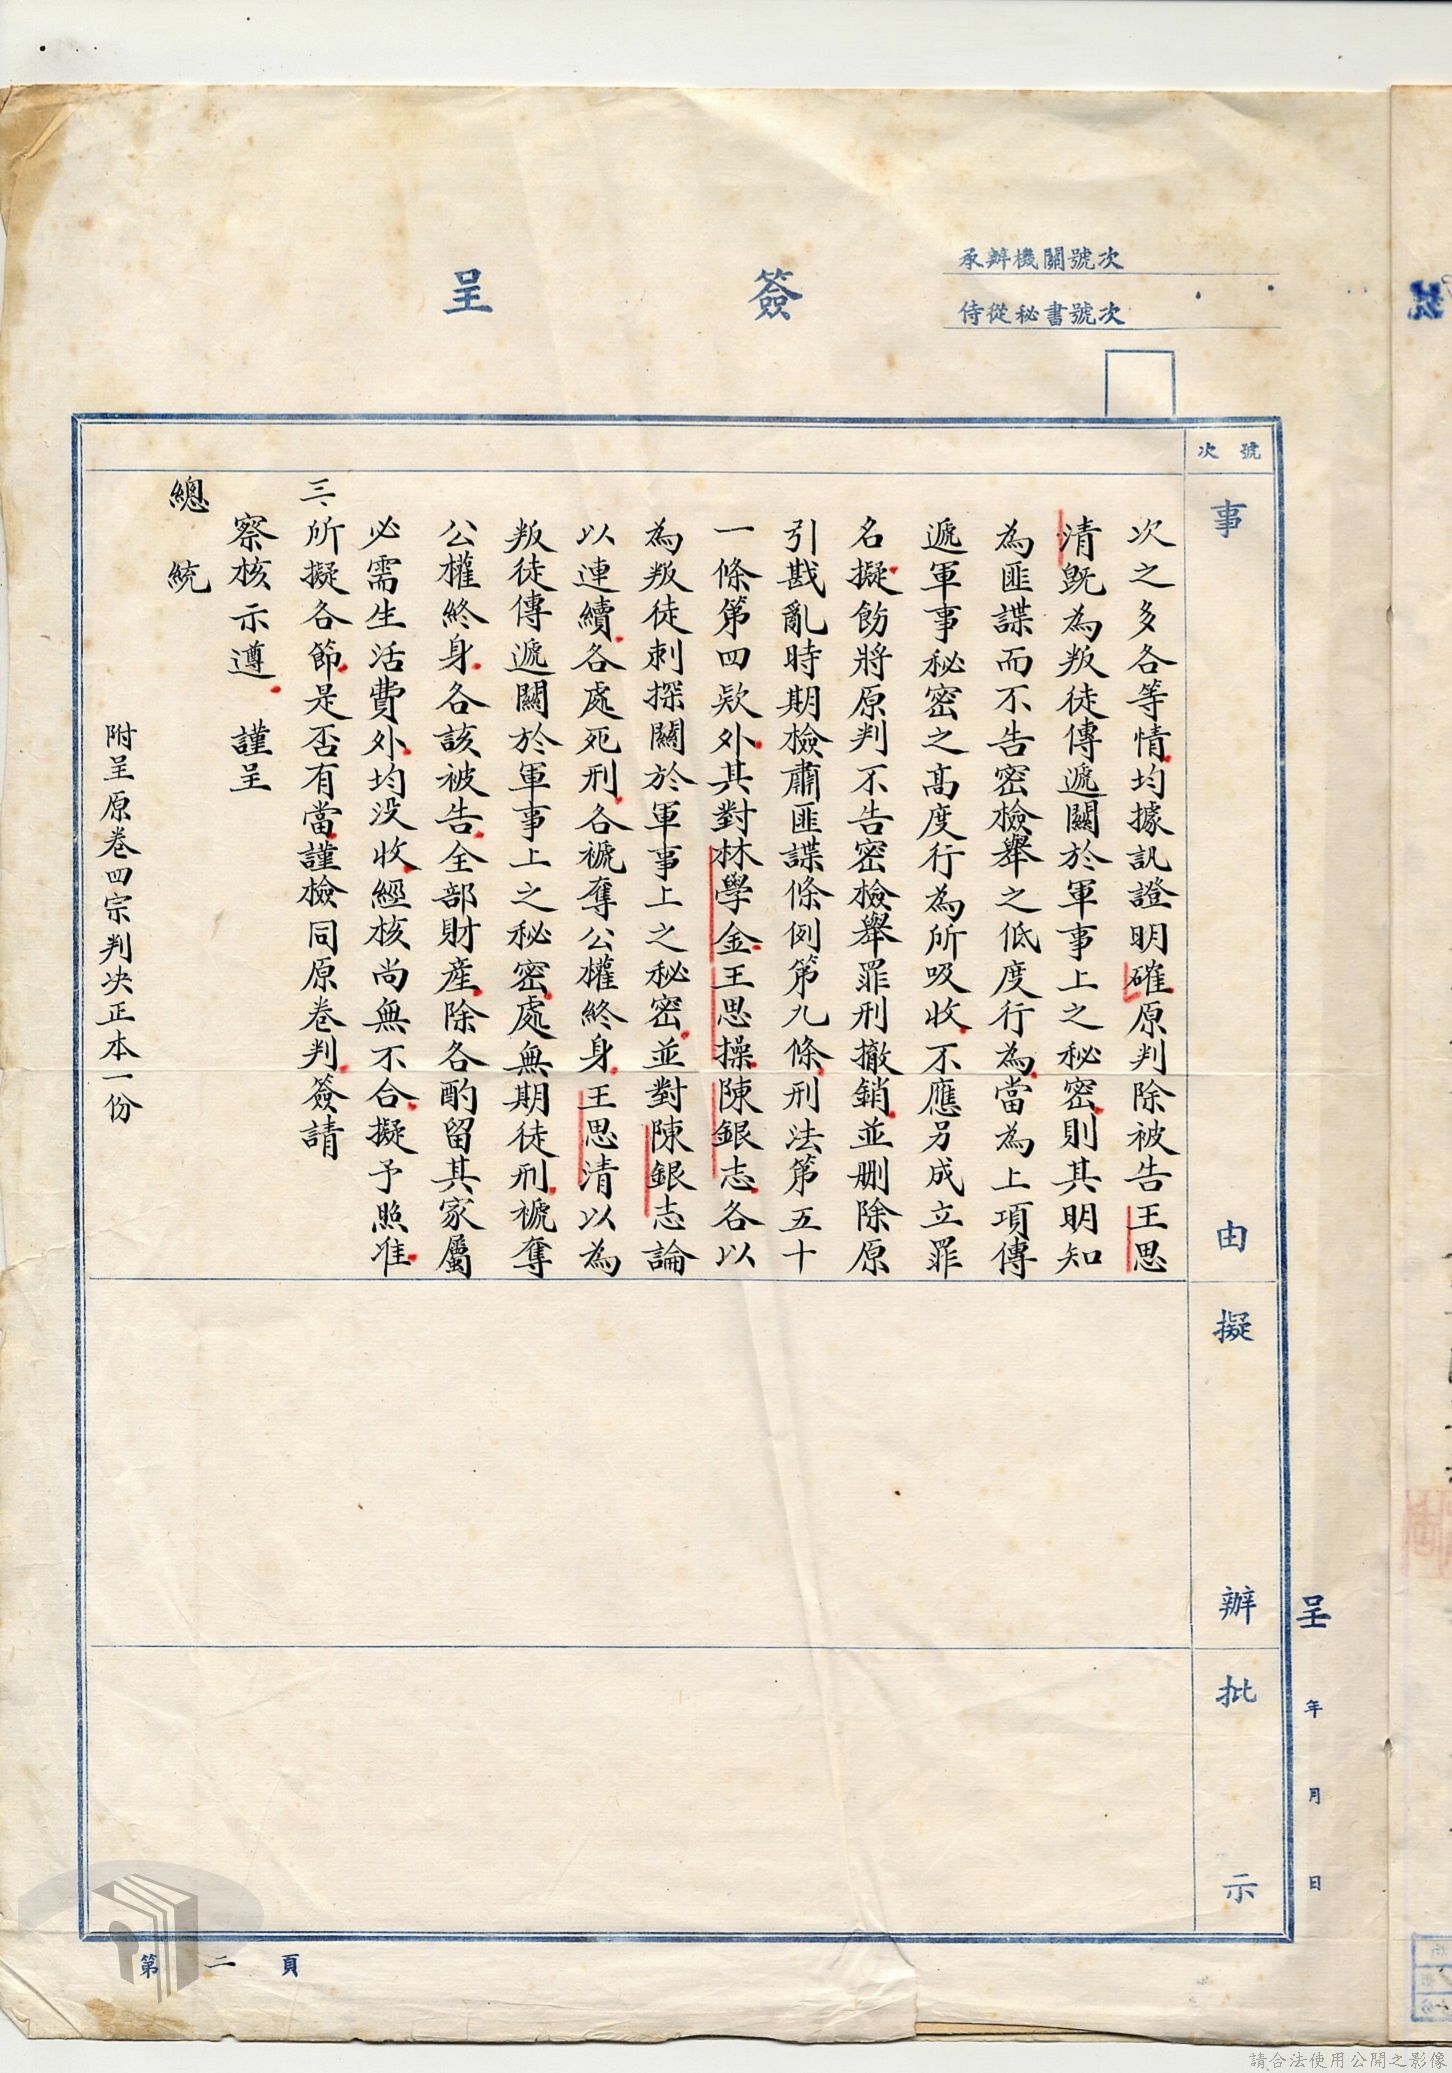 簽呈
承辦機關號次
侍從秘書號次
號次
事由
擬辦
批示
次之多各等情均據訊證明確原判除被告王思
清既為叛徒傳遞關於軍事上之秘密則其明知
為匪諜而不告密檢舉之低度行為當為上項傳
遞軍事秘密之高度行為所吸收不應另成立罪
名擬飭將原判不告密檢舉罪刑撤銷並刪除原
引戡亂時期檢肅匪諜條例第九條刑法第五十
一條第四欵外其對林學金王思操陳銀志各以
為叛徒刺探關於軍事上之秘密並對陳銀志論
以連續各處死刑各褫奪公權終身王思清以為
叛徒傳遞關於軍事上之秘密處無期徒刑褫奪
公權終身各該被告全部財產除各酌留其家屬
必需生活費外均没收經核尚無不合擬予照准
三、所擬各節是否有當謹檢同原卷判簽請
察核示遵 謹呈
總統
附呈原卷四宗判决正本一份
呈 年 月 日
第二頁
號
請合法使用公開之影像